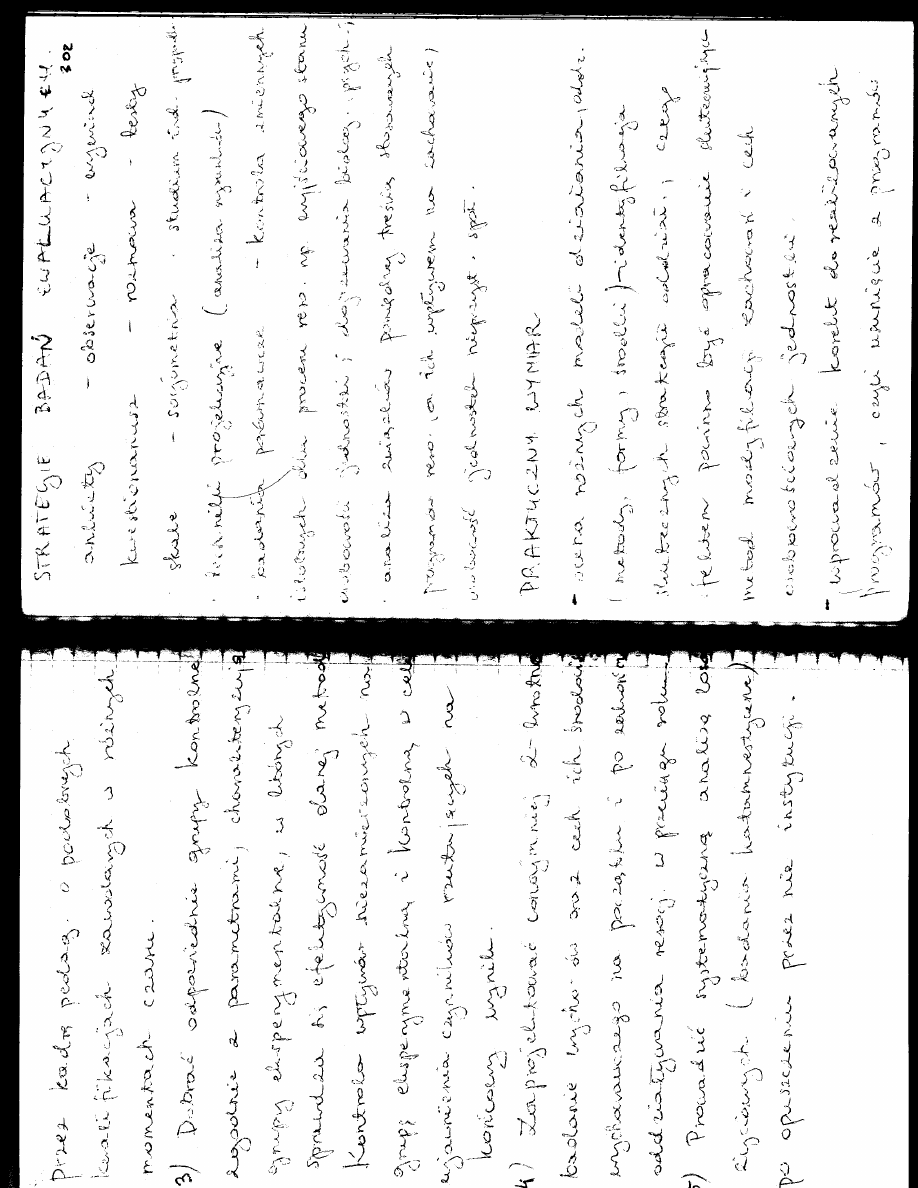 przez kadrę pedag. o podobnych
kwalifikacjach zawodowych w różnych
momentach czasu.
3) Dobrać odpowiednie grupy kontrolne
zgodnie z parametrami, charakteryzują
grupy eksperymentalne, w których
sprawdza się efektywność danej metody
Kontrola wpływów niezamierzonych na
grupę eksperymentalną i kontrolną w celu
ujawnienia czynników rzutujących na
końcowy wynik.
4) Zaprojektować conajmniej 2-krotne
badanie wych-ów oraz cech ich środow.
wychowawczego na początku i po zakończ.
oddziaływania resocj. w przeciągu roku.
5) Prowadzić systematyczną analizę losów
życiowych (badania katamnestyczne)
po opuszczeniu przez nie instytucji.
STRATEGIE BADAŃ EWALUACYJNYCH.
302
ankiety - obserwacje - wywiad
kwestionariusz - rozmowa - testy
skale - socjometria - studium ind. przypadk.
techniki projekcyjne (analiza rysunku)
badania porównawcze - kontrola zmiennych
istotnych dla procesu reso. np. wyjściowego stanu
osobowości jednostki i dojrzewania biolog. i psych.;
analiza związków pomiędzy treścią stosowanych
programów reso. a ich wpływem na zachowanie i
osobowość jednostek nieprzyst. społ.
PRAKTYCZNY WYMIAR
- ocena różnych modeli działania, oddz.
(metody, formy, środki) - identyfikacja
skutecznych strategii oddział., czego
efektem powinno być opracowanie skuteczniejszych
metod modyfikacji zachowań i cech
osobowościowych jednostki.
- wprowadzenie korekt do realizowanych
programów, czyli usunięcie z programów